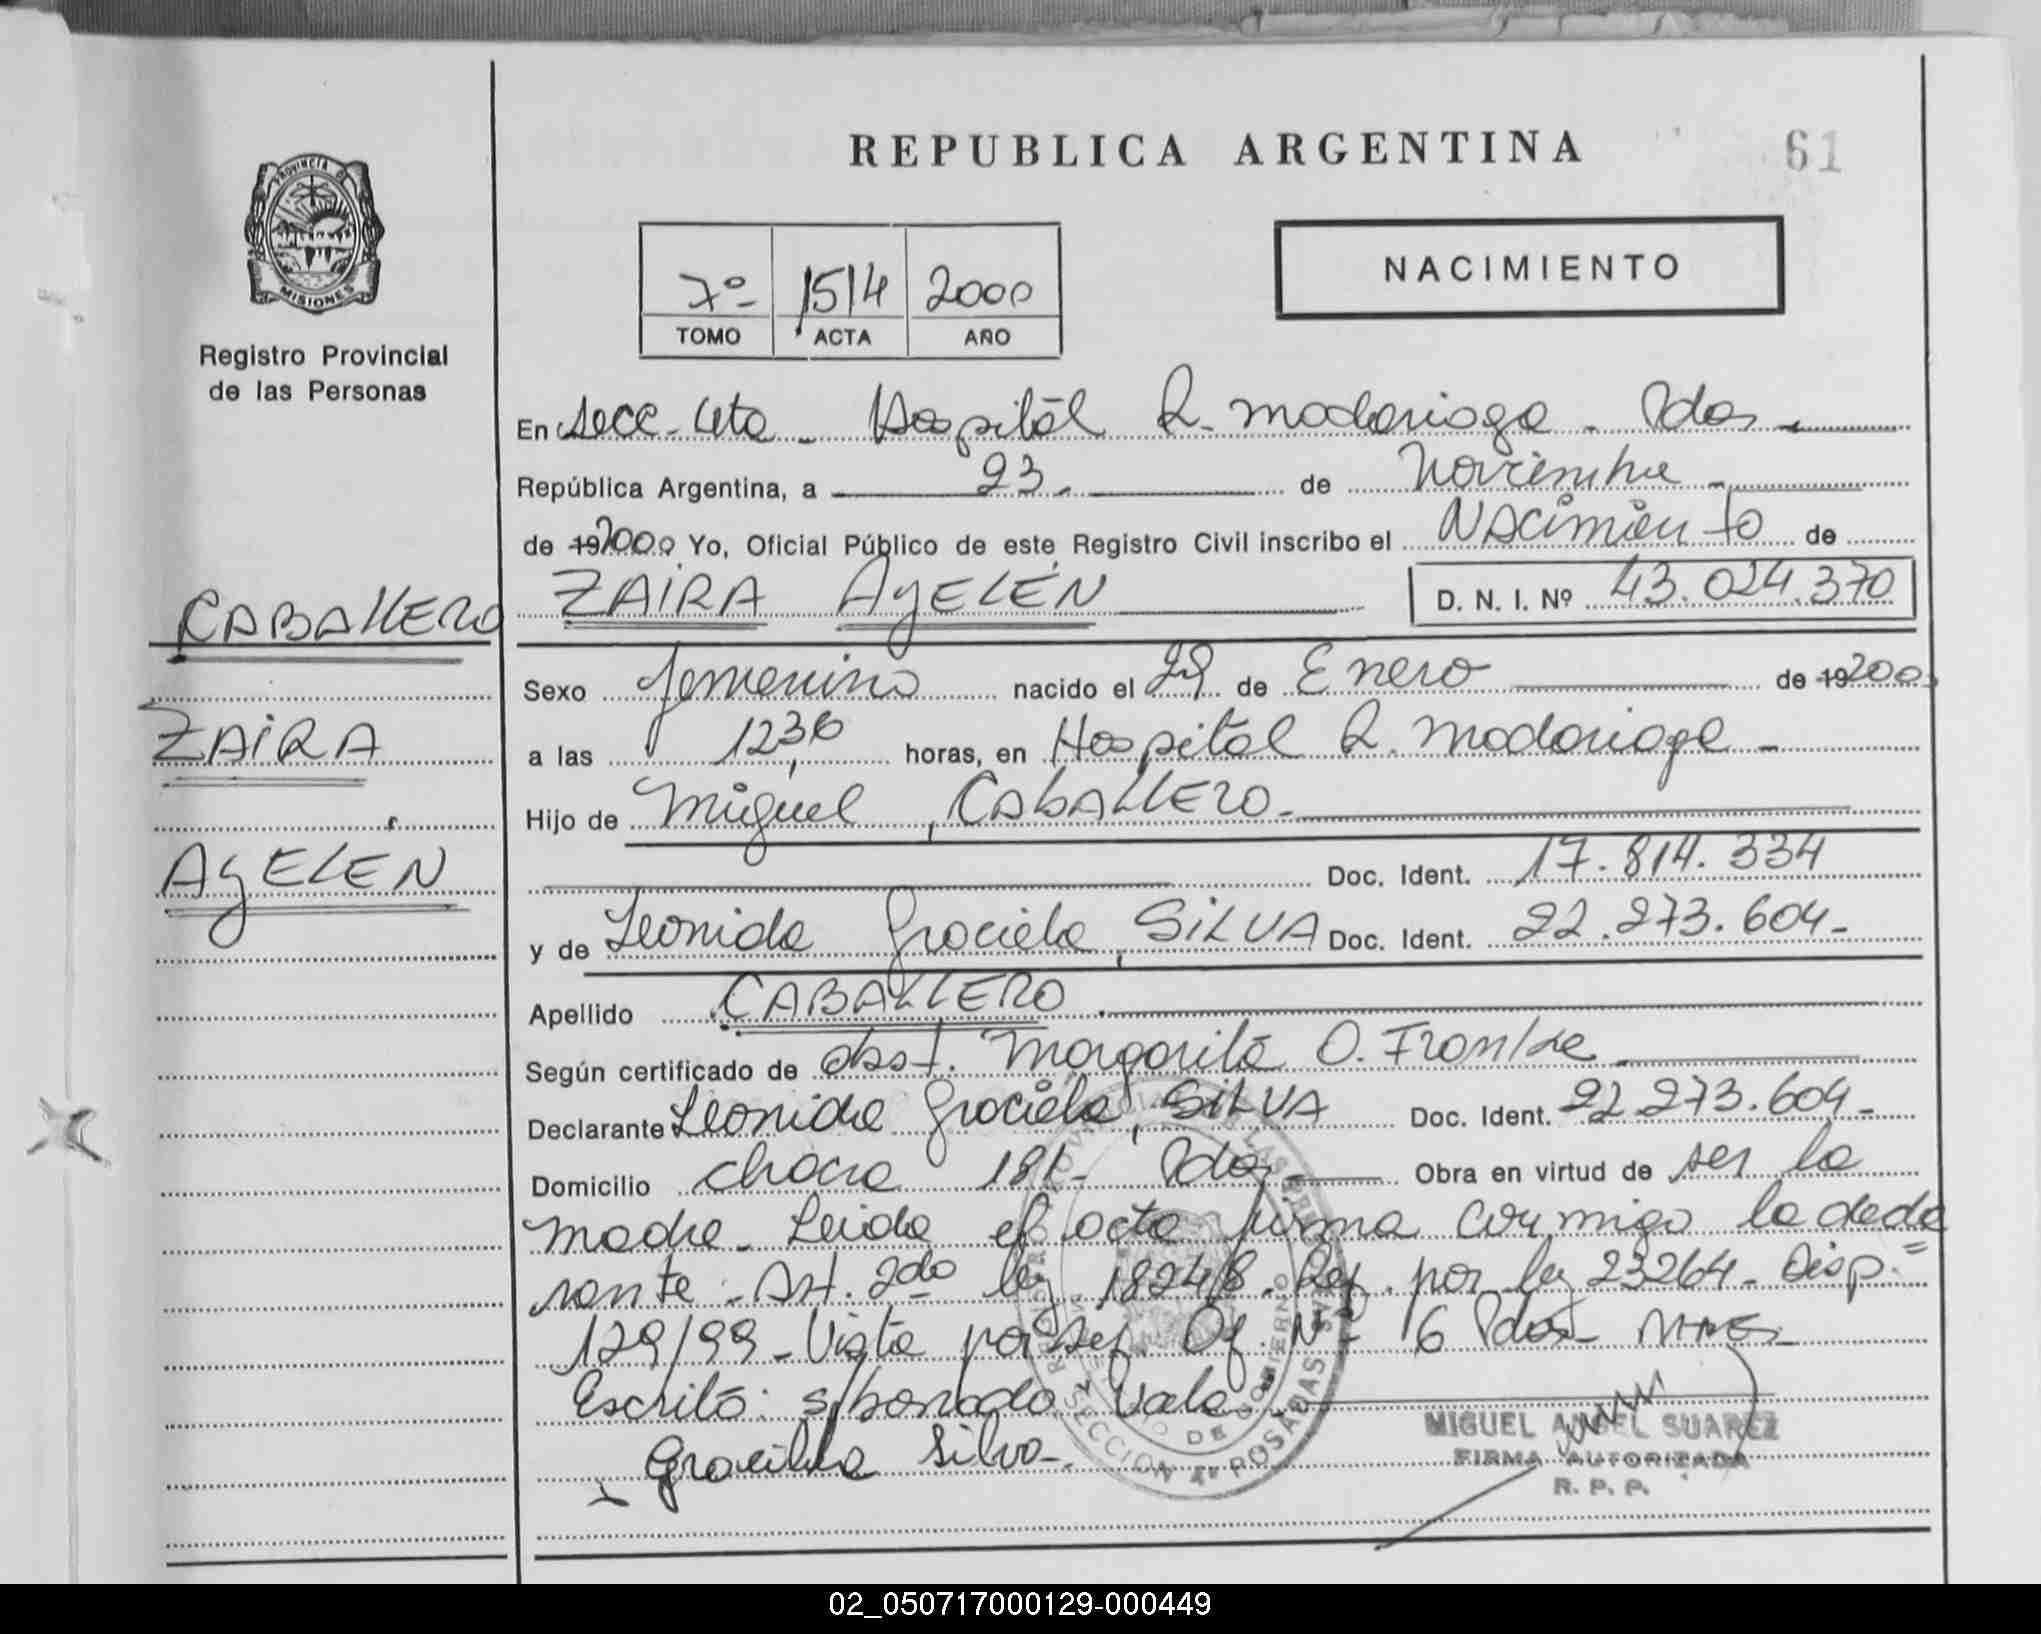 REPUBLICA ARGENTINA
61
PROVINCIA D
MISIONES
Registro Provincial
de las Personas
7º 1514 2000
TOMO ACTA AÑO
NACIMIENTO
En Secc. 4ta. Hospital R. Madariaga. Pdas
República Argentina, a 23. de Noviembre
de 192000 Yo, Oficial Público de este Registro Civil inscribo el Nacimiento de
CABALLERO
ZAIRA AYELÉN D. N. I. Nº 43.024.370
Sexo femenino nacido el 29 de Enero de 19200
ZAIRA
a las horas, en Hospital R. Madariaga
Hijo de Miguel, CABALLERO.
AYELEN
Doc. Ident. 17.814.334
y de Leonida Graciela, SILVA Doc. Ident. 22.273.604
Apellido CABALLERO
Según certificado de obst. Margarita O.
Declarante Leonida Graciela, SILVA Doc. Ident. 22.273.604
Domicilio chacra 181 Pdas Obra en virtud de ser la
madre. Leida el acta firma conmigo la decla
rante. Art. 2do ley 18248. Ref. por ley 23264. Disp.
129/99. Vista por Of. Nº 16 Pdas Mnes
Escrito: s/borrado Vale.
x Graciela Silva
SECCION 4º POSADAS
MIGUEL ANGEL SUAREZ
FIRMA AUTORIZADA
R. P. P.
02_050717000129-000449